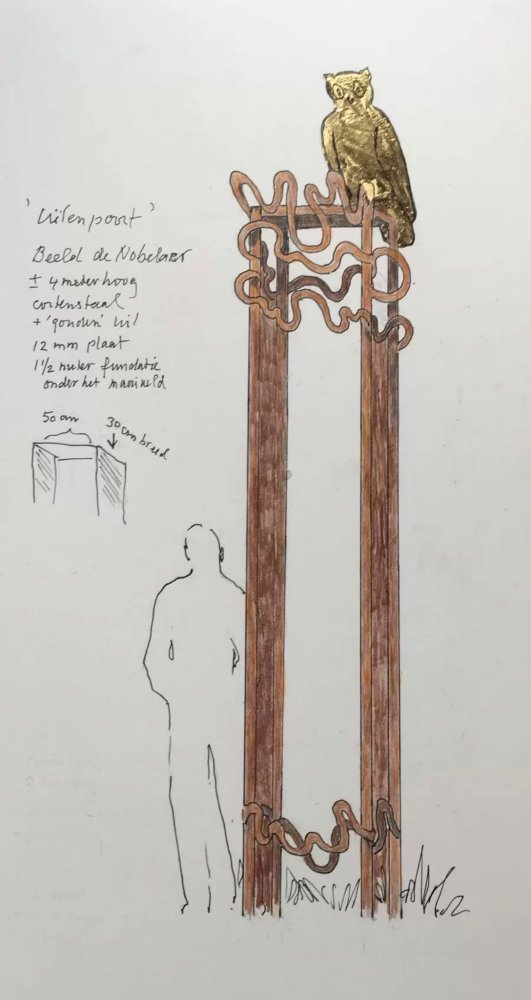 'Uilenpoort'
Beeld de Nobelaer
± 4 meter hoog
cortenstaal
+ 'gouden' uil
12 mm plaat
1 1/2 meter fundatie
onder het maaiveld
50 cm
30 cm breed